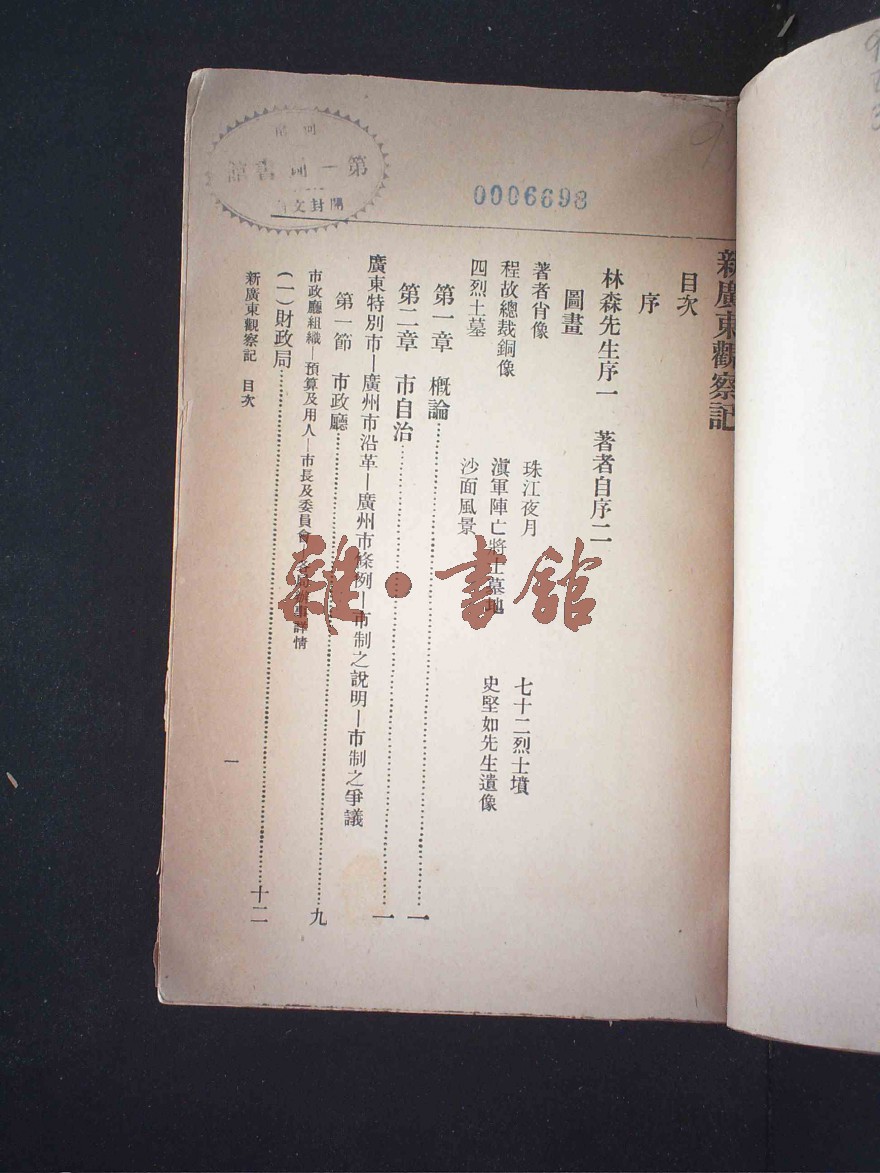 新廣東觀察記
目次
序
林森先生序一 著者自序二
圖畫
著者肖像 珠江夜月 七十二烈士墳
程故總裁銅像 滇軍陣亡將士墓地 史堅如先生遺像
四烈士墓 沙面風景
第一章 概論 一
第二章 市自治 一
廣東特別市—廣州市沿革—廣州市條例—市制之說明—市制之爭議
第一節 市政廳 九
市政廳組織—預算及用人—市長及委員會—各局辦事詳情
(一)財政局 十二
新廣東觀察記 目次
一
0006698
第一 書館
開封文
雜·書館